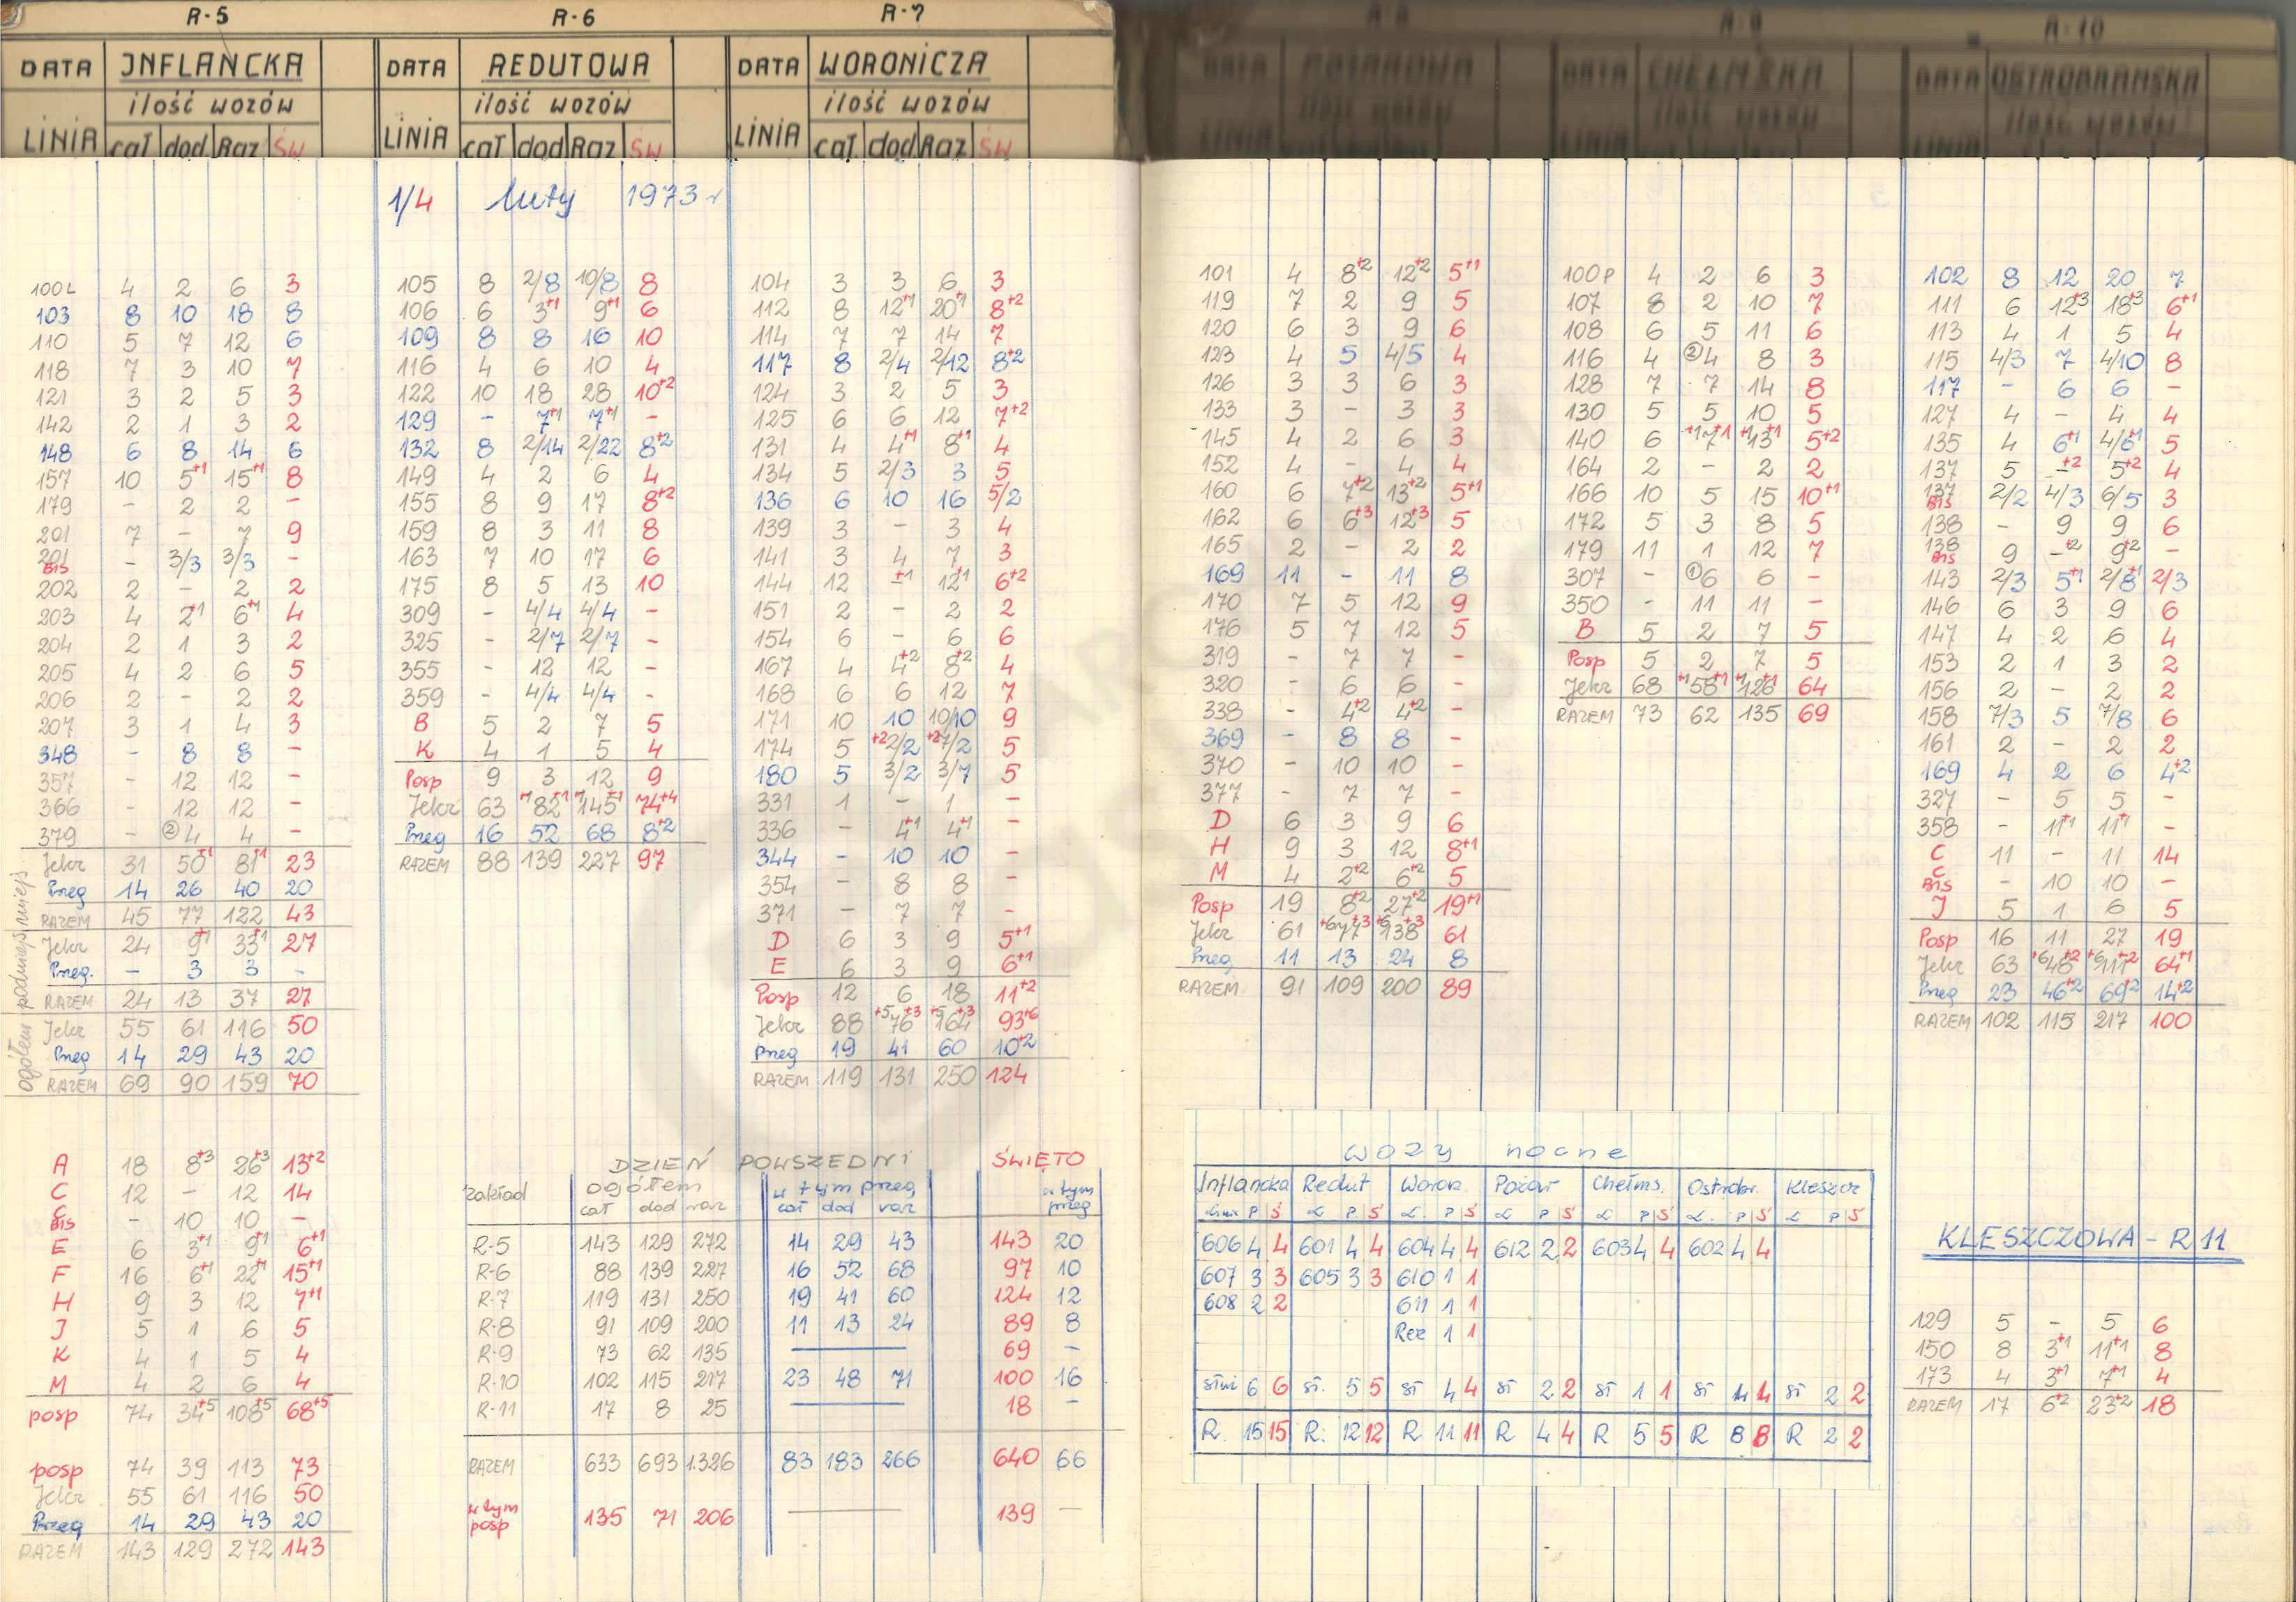 R-5
DATA INFLANCKA
ilość wozów
LINIA cał dod Raz św
100L 4 2 6 3
103 8 10 18 8
110 5 7 12 6
118 7 3 10 7
121 3 2 5 3
142 2 1 3 2
148 6 8 14 6
157 10 5+1 15+1 8
179 - 2 2 -
201 7 - 7 9
201 Bis - 3/3 3/3 -
202 2 - 2 2
203 4 2+1 6+1 4
204 2 1 3 2
205 4 2 6 5
206 2 - 2 2
207 3 1 4 3
348 - 8 8 -
357 - 12 12 -
366 - 12 12 -
379 - ② 4 4 -
Jelcz 31 50+1 81+1 23
Przeg 14 26 40 20
RAZEM 45 77 122 43
Jelcz 24 9+1 33+1 27
Przeg. - 3 3 -
RAZEM 24 13 37 27
Jelcz 55 61 116 50
Przeg 14 29 43 20
RAZEM 69 90 159 70
ogółem podmiejs miejs
A 18 8+3 26+3 13+2
C 12 - 12 14
C Bis - 10 10 -
E 6 3+1 9+1 6+1
F 16 6+1 22+1 15+1
H 9 3 12 7+1
J 5 1 6 5
K 4 1 5 4
M 4 2 6 4
posp 74 34+5 108+5 68+5
posp 74 39 113 73
Jelcz 55 61 116 50
Przeg 14 29 43 20
RAZEM 143 129 272 143
R-6
DATA REDUTOWA
ilość wozów
LINIA cał dod Raz św
1/4 luty 1973 r
105 8 2/8 10/8 8
106 6 3+1 9+1 6
109 8 8 16 10
116 4 6 10 4
122 10 18 28 10+2
129 - 7+1 7+1 -
132 8 2/14 2/22 8+2
149 4 2 6 4
155 8 9 17 8+2
159 8 3 11 8
163 7 10 17 6
175 8 5 13 10
309 - 4/4 4/4 -
325 - 2/7 2/7 -
355 - 12 12 -
359 - 4/4 4/4 -
B 5 2 7 5
K 4 1 5 4
Posp 9 3 12 9
Jelcz 63 +1 82+1 +1 145+1 74+4
Przeg 16 52 68 8+2
RAZEM 88 139 227 97
R-7
DATA WORONICZA
ilość wozów
LINIA cał dod Raz św
104 3 3 6 3
112 8 12+1 20+1 8+2
114 7 7 14 7
117 8 2/4 2/12 8+2
124 3 2 5 3
125 6 6 12 7+2
131 4 4+1 8+1 4
134 5 2/3 3 5
136 6 10 16 5/2
139 3 - 3 4
141 3 4 7 3
144 12 -+1 12+1 6+2
151 2 - 2 2
154 6 - 6 6
167 4 4+2 8+2 4
168 6 6 12 7
171 10 10 10/10 9
174 5 +2 2/2 +2 7/2 5
180 5 3/2 3/7 5
331 1 - 1 -
336 - 4+1 4+1 -
344 - 10 10 -
354 - 8 8 -
371 - 7 7 -
D 6 3 9 5+1
E 6 3 9 6+1
Posp 12 6 18 11+2
Jelcz 88 +5 76+3 +5 164+3 93+6
Przeg 19 41 60 10+2
RAZEM 119 131 250 124
DZIEŃ POWSZEDNI ŚWIĘTO
zakład ogółem w tym przeg w tym przeg
cał dod raz cał dod raz
R-5 143 129 272 14 29 43 143 20
R-6 88 139 227 16 52 68 97 10
R-7 119 131 250 19 41 60 124 12
R-8 91 109 200 11 13 24 89 8
R-9 73 62 135 — 69 -
R-10 102 115 217 23 48 71 100 16
R-11 17 8 25 — 18 -
RAZEM 633 693 1.326 83 183 266 640 66
w tym posp 135 71 206 — 139 —
R-8
DATA POŻAROWA
ilość wozów
LINIA
101 4 8+2 12+2 5+1
119 7 2 9 5
120 6 3 9 6
123 4 5 4/5 4
126 3 3 6 3
133 3 - 3 3
145 4 2 6 3
152 4 - 4 4
160 6 7+2 13+2 5+1
162 6 6+3 12+3 5
165 2 - 2 2
169 11 - 11 8
170 7 5 12 9
176 5 7 12 5
319 - 7 7 -
320 - 6 6 -
338 - 4+2 4+2 -
369 - 8 8 -
370 - 10 10 -
377 - 7 7 -
D 6 3 9 6
H 9 3 12 8+1
M 4 2+2 6+2 5
Posp 19 8+2 27+2 19+1
Jelcz 61 +6 77+3 +6 138+3 61
Przeg 11 13 24 8
RAZEM 91 109 200 89
R-9
DATA CHEŁMSKA
ilość wozów
LINIA
100P 4 2 6 3
107 8 2 10 7
108 6 5 11 6
116 4 ② 4 8 3
128 7 7 14 8
130 5 5 10 5
140 6 +1 7+1 +1 13+1 5+2
164 2 - 2 2
166 10 5 15 10+1
172 5 3 8 5
179 11 1 12 7
307 - ① 6 6 -
350 - 11 11 -
B 5 2 7 5
Posp 5 2 7 5
Jelcz 68 +1 58+1 +1 126+1 64
RAZEM 73 62 135 69
R-10
DATA OSTROBRAMSKA
ilość wozów
LINIA
102 8 12 20 7
111 6 12+3 18+3 6+1
113 4 1 5 4
115 4/3 7 4/10 8
117 - 6 6 -
127 4 - 4 4
135 4 6+1 4/6+1 5
137 5 -+2 5+2 4
137 Bis 2/2 4/3 6/5 3
138 - 9 9 6
138 Bis 9 -+2 9+2 -
143 2/3 5+1 2/8+1 2/3
146 6 3 9 6
147 4 2 6 4
153 2 1 3 2
156 2 - 2 2
158 7/3 5 7/8 6
161 2 - 2 2
169 4 2 6 4+2
327 - 5 5 -
358 - 11+1 11+1 -
C 11 - 11 14
C Bis - 10 10 -
J 5 1 6 5
Posp 16 11 27 19
Jelcz 63 +6 48+2 +6 111+2 64+1
Przeg 23 46+2 69+2 14+2
RAZEM 102 115 217 100
wozy nocne
Inflancka Redut Woron. Pożar Chełms. Ostrobr. Kleszcz
Linie P Ś L P Ś L. P Ś L P Ś L P Ś L. P Ś L P Ś
606 4 4 601 4 4 604 4 4 612 2 2 603 4 4 602 4 4
607 3 3 605 3 3 610 1 1
608 2 2 611 1 1
Rez 1 1
6 6 5 5 4 4 2 2 1 1 4 4 2 2
R. 15 15 R: 12 12 R 11 11 R 4 4 R 5 5 R 8 8 R 2 2
KLESZCZOWA - R 11
129 5 - 5 6
150 8 3+1 11+1 8
173 4 3+1 7+1 4
RAZEM 17 6+2 23+2 18